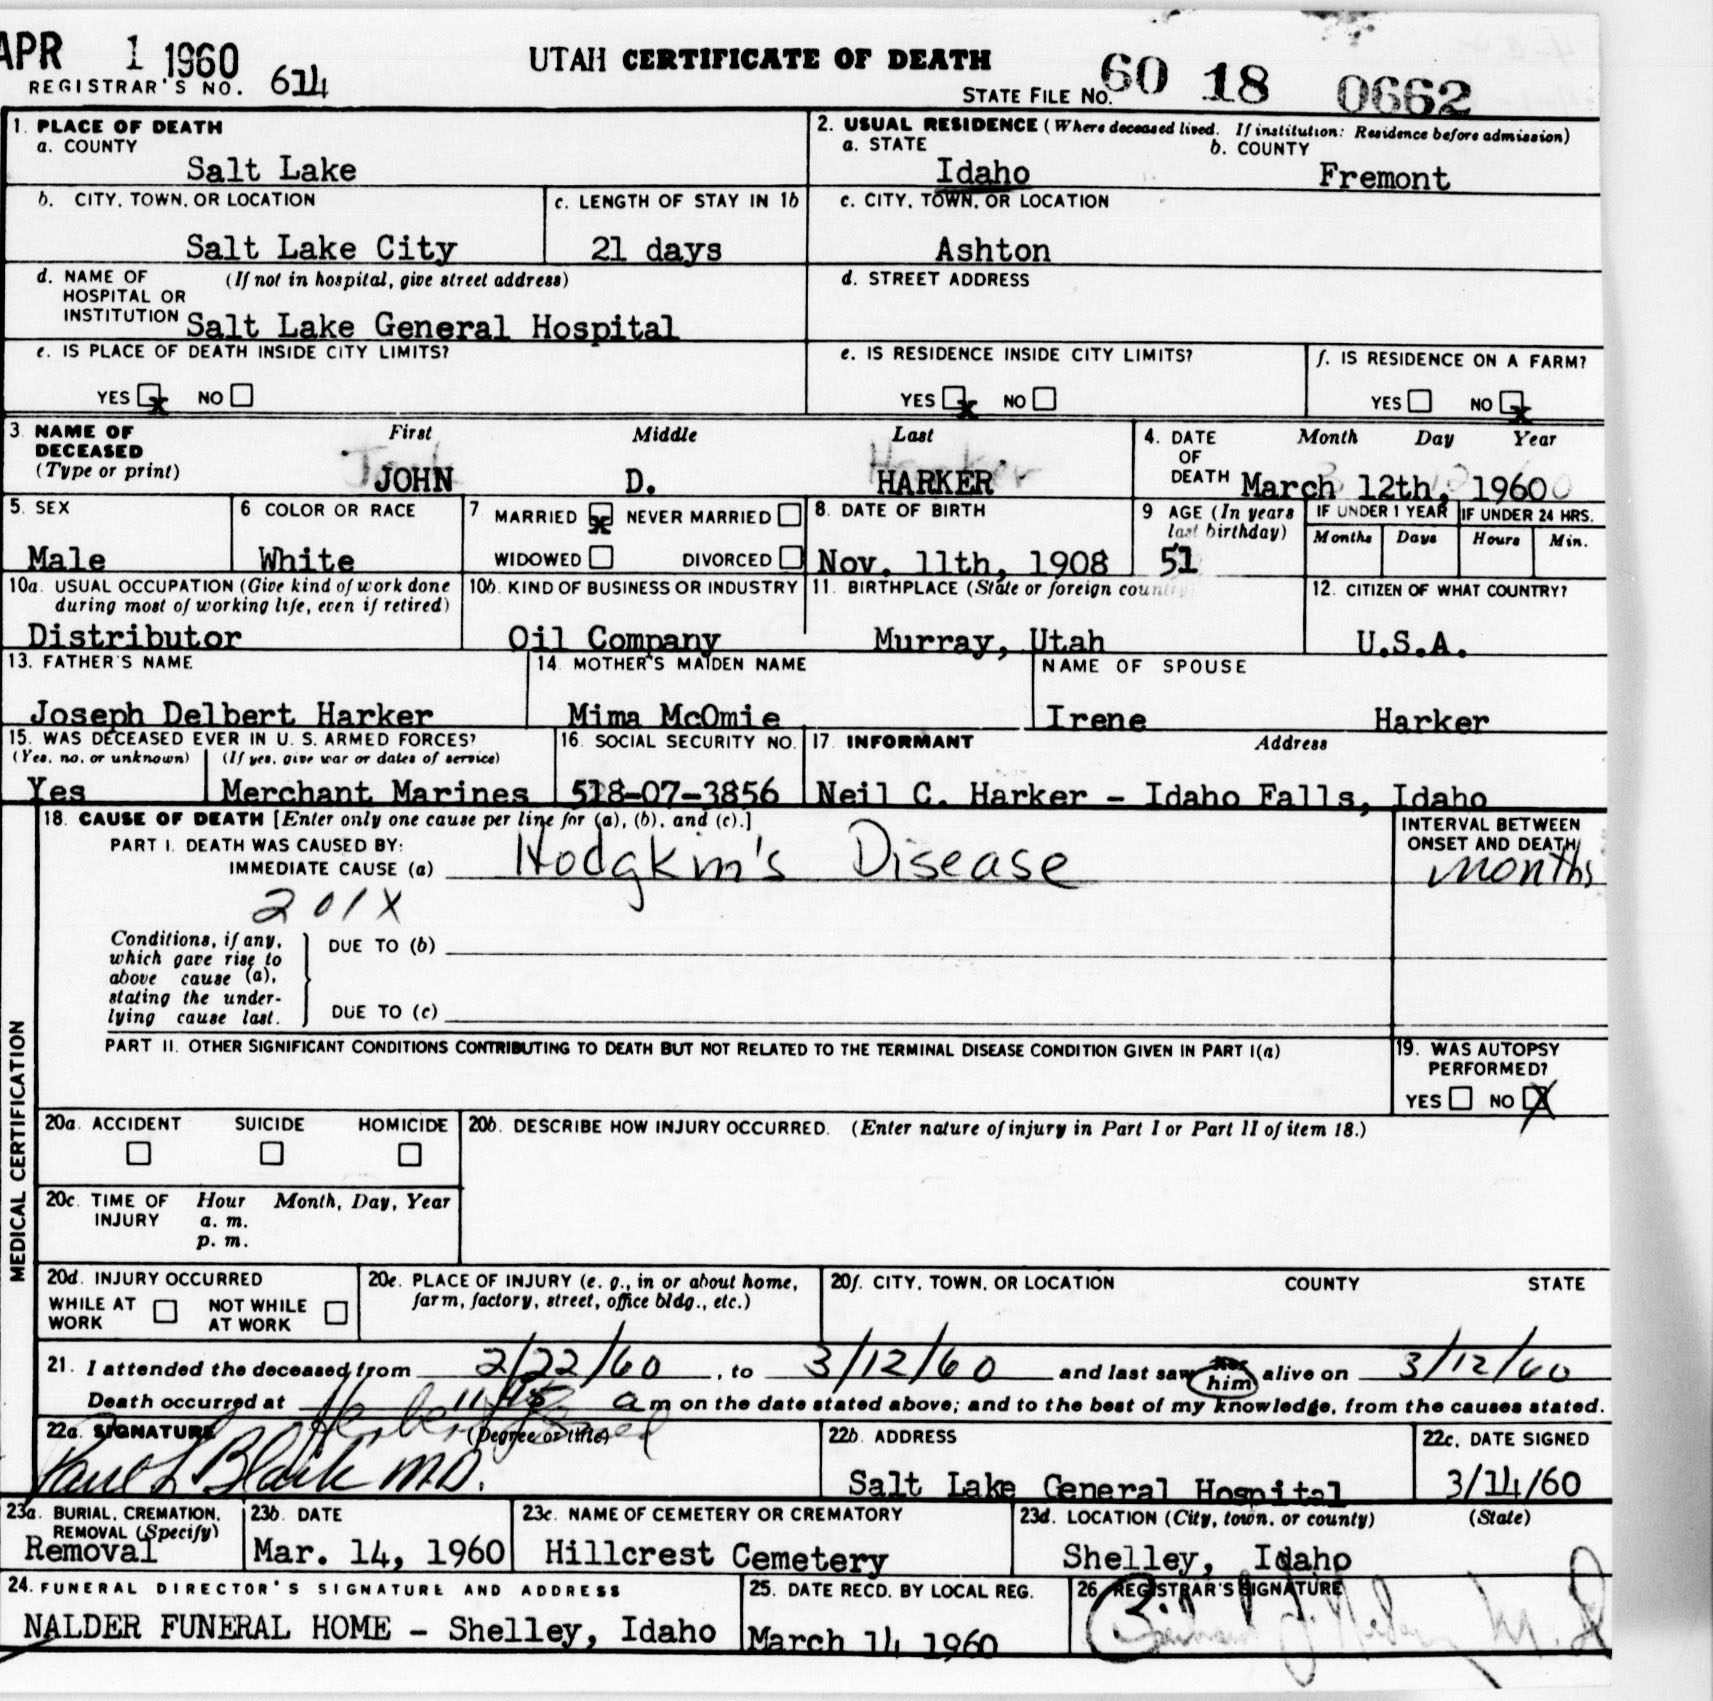 APR 1 1960
REGISTRAR'S NO. 614
UTAH CERTIFICATE OF DEATH
STATE FILE NO. 60 18 0662
1. PLACE OF DEATH
a. COUNTY
Salt Lake
2. USUAL RESIDENCE (Where deceased lived. If institution: Residence before admission)
a. STATE b. COUNTY
Idaho Fremont
b. CITY, TOWN, OR LOCATION
Salt Lake City
c. LENGTH OF STAY IN 1b
21 days
c. CITY, TOWN, OR LOCATION
Ashton
d. NAME OF (If not in hospital, give street address)
HOSPITAL OR
INSTITUTION Salt Lake General Hospital
d. STREET ADDRESS
e. IS PLACE OF DEATH INSIDE CITY LIMITS?
YES x NO
e. IS RESIDENCE INSIDE CITY LIMITS?
YES x NO
f. IS RESIDENCE ON A FARM?
YES NO x
3. NAME OF First Middle Last
DECEASED
(Type or print) JOHN D. HARKER
4. DATE Month Day Year
OF
DEATH March 12th, 1960
5. SEX
Male
6. COLOR OR RACE
White
7. MARRIED x NEVER MARRIED
WIDOWED DIVORCED
8. DATE OF BIRTH
Nov. 11th, 1908
9. AGE (In years
last birthday)
51
IF UNDER 1 YEAR IF UNDER 24 HRS.
Months Days Hours Min.
10a. USUAL OCCUPATION (Give kind of work done
during most of working life, even if retired)
Distributor
10b. KIND OF BUSINESS OR INDUSTRY
Oil Company
11. BIRTHPLACE (State or foreign country)
Murray, Utah
12. CITIZEN OF WHAT COUNTRY?
U.S.A.
13. FATHER'S NAME
Joseph Delbert Harker
14. MOTHER'S MAIDEN NAME
Mima McOmie
NAME OF SPOUSE
Irene Harker
15. WAS DECEASED EVER IN U. S. ARMED FORCES?
(Yes, no, or unknown) (If yes, give war or dates of service)
Yes Merchant Marines
16. SOCIAL SECURITY NO.
518-07-3856
17. INFORMANT Address
Neil C. Harker - Idaho Falls, Idaho
MEDICAL CERTIFICATION
18. CAUSE OF DEATH [Enter only one cause per line for (a), (b), and (c).]
PART I. DEATH WAS CAUSED BY:
IMMEDIATE CAUSE (a) Hodgkin's Disease
201X
INTERVAL BETWEEN
ONSET AND DEATH
months
Conditions, if any,
which gave rise to
above cause (a),
stating the under-
lying cause last.
DUE TO (b)
DUE TO (c)
PART II. OTHER SIGNIFICANT CONDITIONS CONTRIBUTING TO DEATH BUT NOT RELATED TO THE TERMINAL DISEASE CONDITION GIVEN IN PART I(a)
19. WAS AUTOPSY
PERFORMED?
YES NO X
20a. ACCIDENT SUICIDE HOMICIDE
20b. DESCRIBE HOW INJURY OCCURRED. (Enter nature of injury in Part I or Part II of item 18.)
20c. TIME OF Hour Month, Day, Year
INJURY a. m.
p. m.
20d. INJURY OCCURRED
WHILE AT NOT WHILE
WORK AT WORK
20e. PLACE OF INJURY (e. g., in or about home,
farm, factory, street, office bldg., etc.)
20f. CITY, TOWN, OR LOCATION COUNTY STATE
21. I attended the deceased from 2/22/60, to 3/12/60 and last saw him alive on 3/12/60
Death occurred at 11:45 a m on the date stated above; and to the best of my knowledge, from the causes stated.
22a. SIGNATURE (Degree or title)
Paul L M.D.
22b. ADDRESS
Salt Lake General Hospital
22c. DATE SIGNED
3/14/60
23a. BURIAL, CREMATION,
REMOVAL (Specify)
Removal
23b. DATE
Mar. 14, 1960
23c. NAME OF CEMETERY OR CREMATORY
Hillcrest Cemetery
23d. LOCATION (City, town, or county) (State)
Shelley, Idaho
24. FUNERAL DIRECTOR'S SIGNATURE AND ADDRESS
NALDER FUNERAL HOME - Shelley, Idaho
25. DATE RECD. BY LOCAL REG.
March 14 1960
26. REGISTRAR'S SIGNATURE